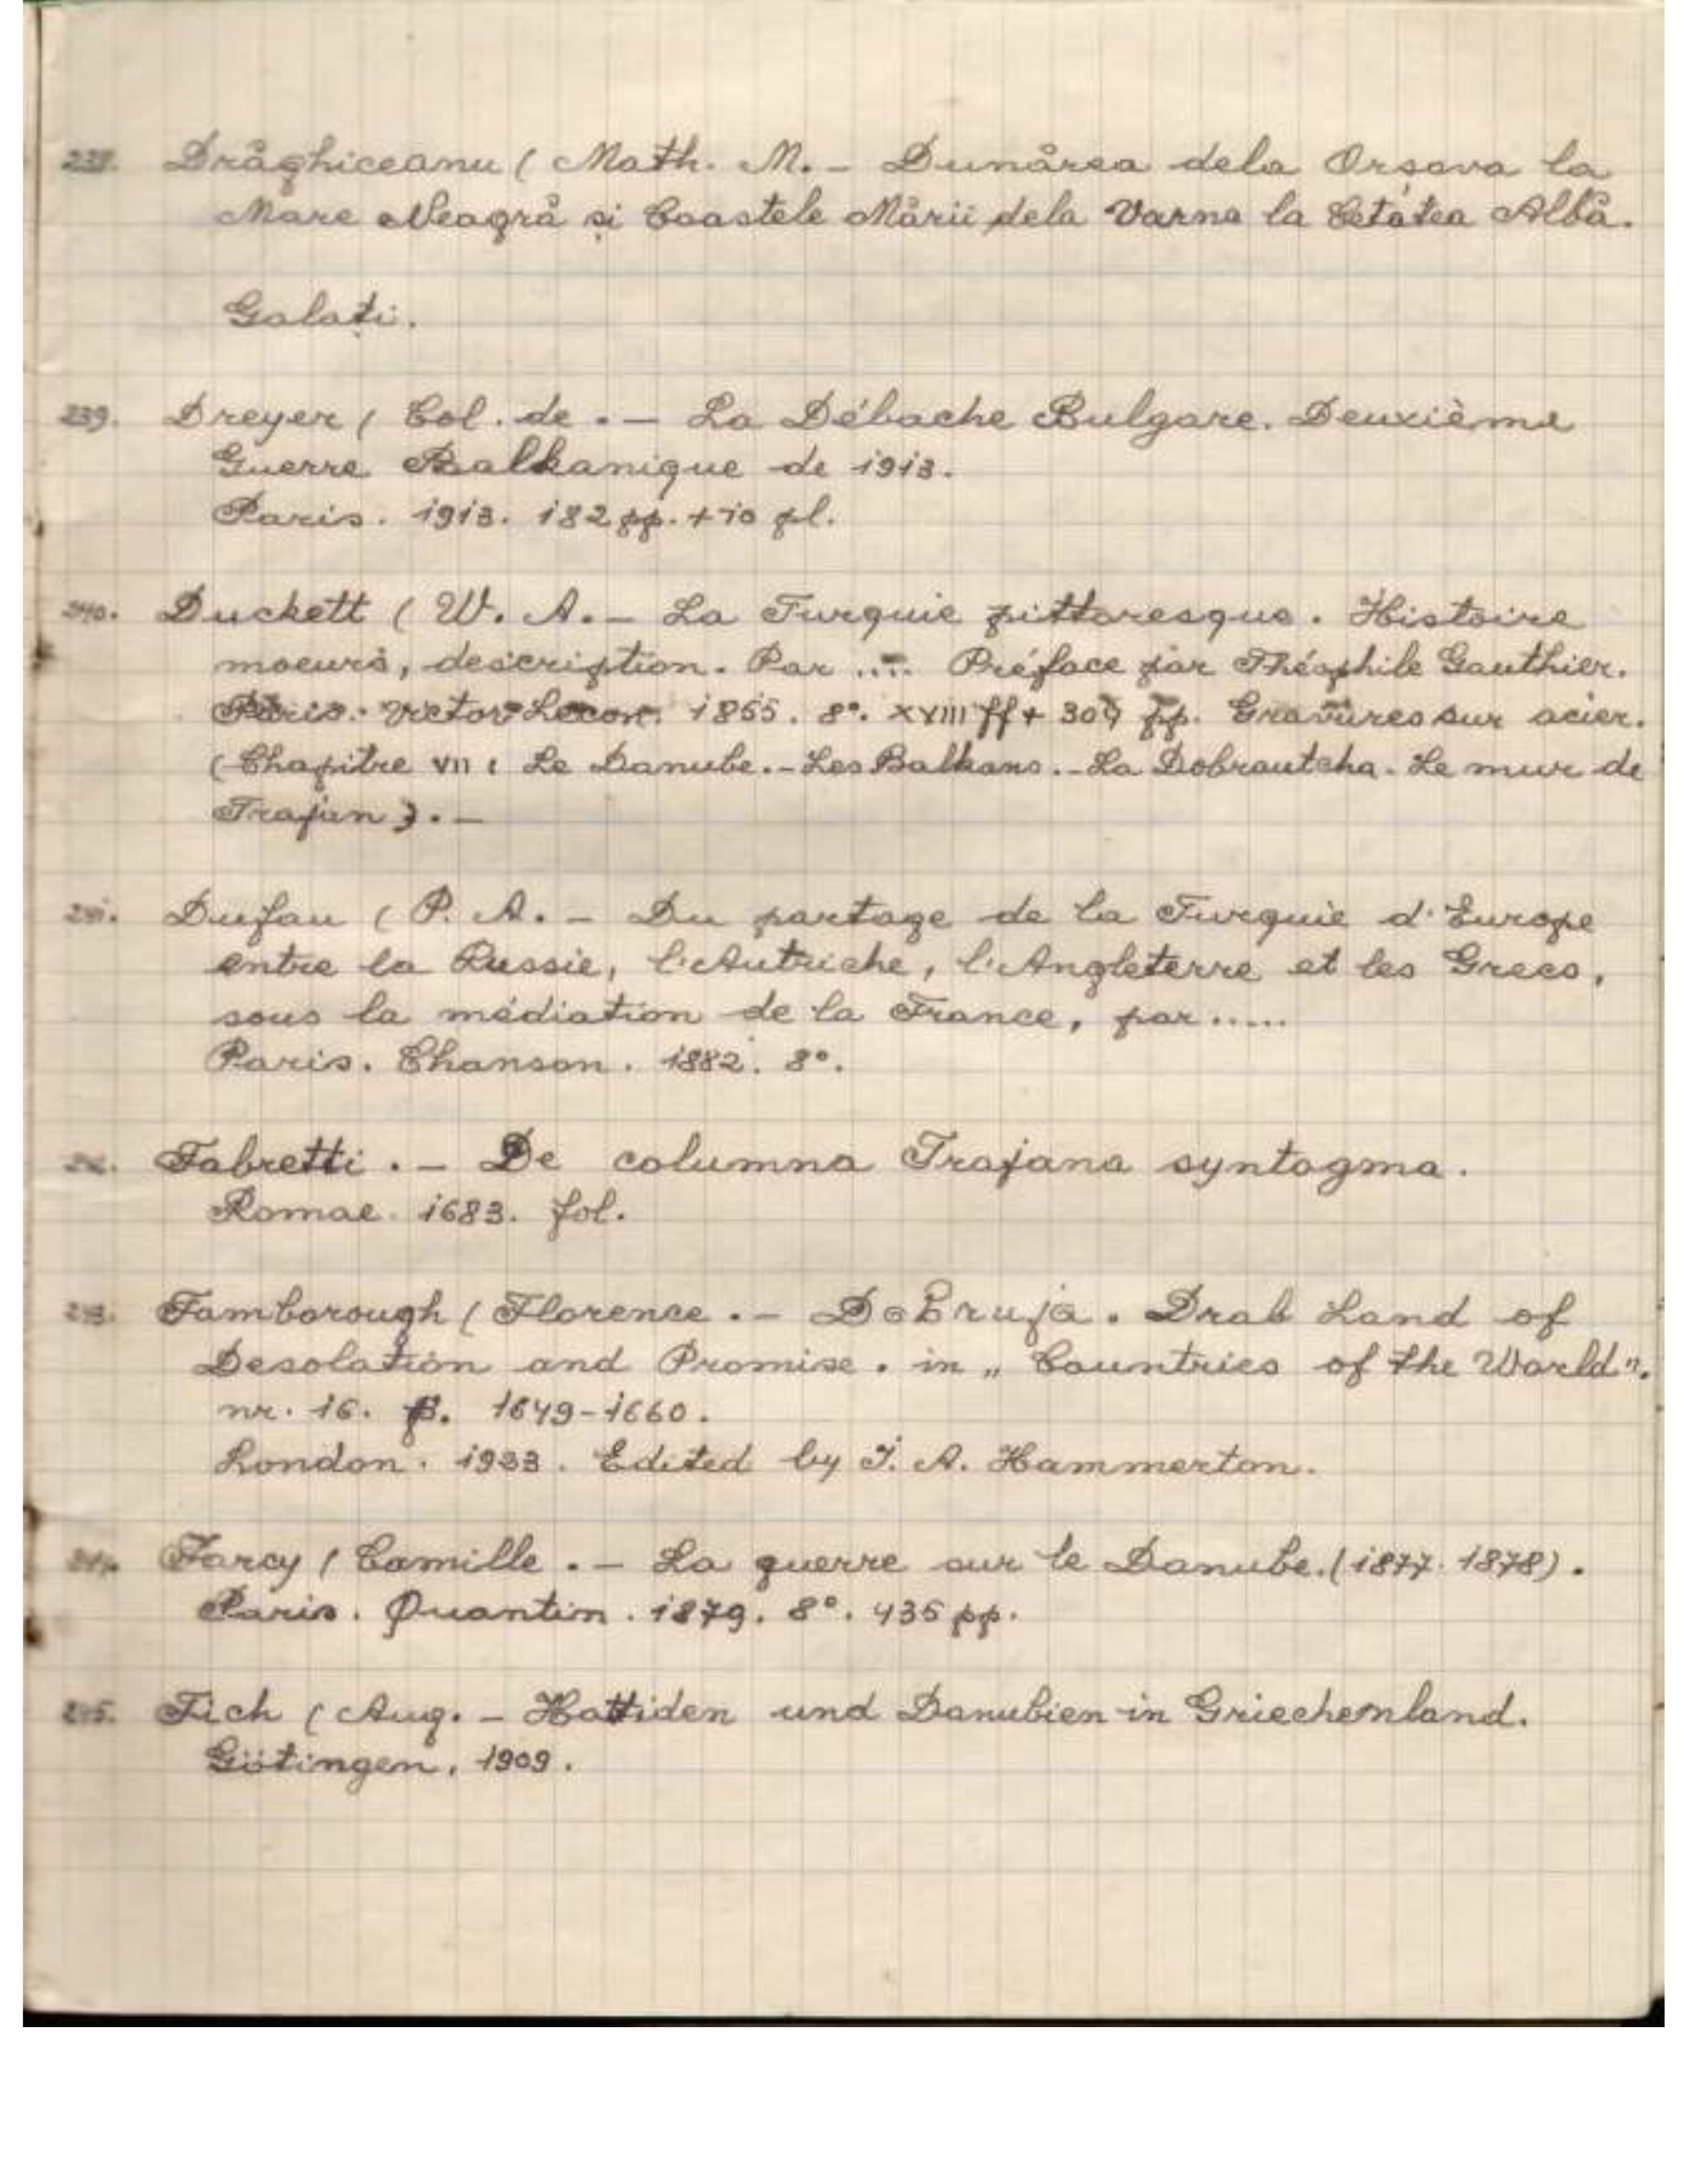 238. Drăghiceanu ( Math. M. - Dunărea dela Orșova la
Mare Neagră și Coastele Mării dela Varna la Cetatea Albă.
Galați.
239. Dreyer ( Col. de . - La Débache Bulgare. Deuxième
Guerre Balkanique de 1913.
Paris. 1913. 182 pp. + 10 pl.
240. Duckett ( W. A. - La Turquie pittoresque. Histoire
moeurs, description. Par .... Préface par Théophile Gauthier.
Paris. Victor Lecon. 1855. 8°. XVIII ff + 309 pp. Gravures sur acier.
(Chapitre VII : Le Danube. - Les Balkans. - La Dobroutcha. Le mur de
Trajan). -
241. Dufau ( P. A. - Du partage de la Turquie d'Europe
entre la Russie, l'Autriche, l'Angleterre et les Grecs,
sous la médiation de la France, par .....
Paris. Chanson. 1882. 8°.
242. Fabretti . - De columna Trajana syntagma.
Romae. 1683. fol.
243. Famborough ( Florence . - Dobruja. Drab Land of
Desolation and Promise. in „ Countries of the World ".
nr. 16. p. 1649-1660.
London. 1933. Edited by J. A. Hammerton.
244. Farcy ( Camille . - La guerre sur le Danube. (1877-1878).
Paris. Quantin. 1879. 8°. 435 pp.
245. Fich ( Aug. - Hattiden und Danubien in Griechenland.
Götingen, 1909.